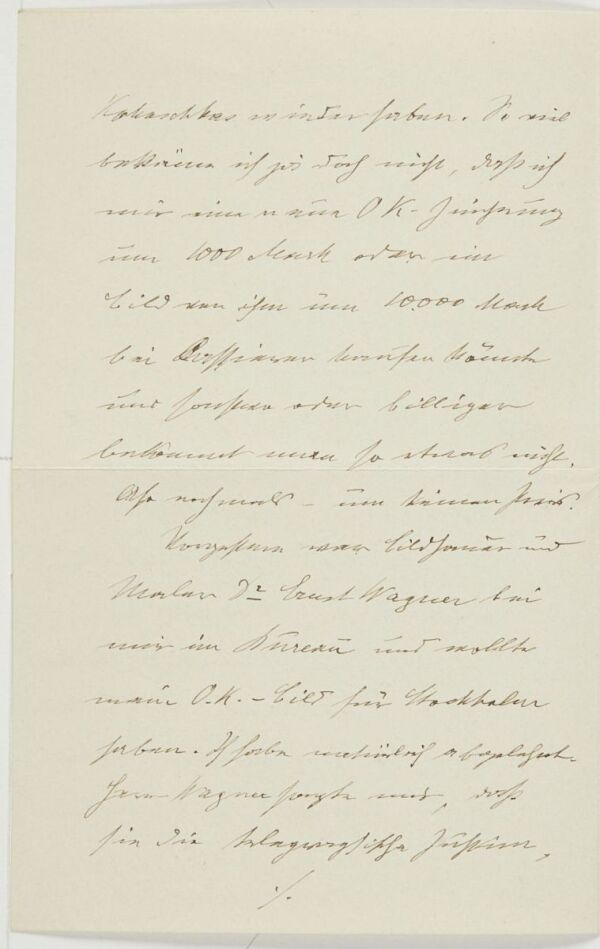 Kokoschkas wieder haben. So viel
bekäme ich ja doch nicht, daß ich
mir eine neue O K-Zeichnung
um 1000 Mark oder ein
Bild von ihm um 10.000 Mark
bei Cassierer kaufen könnte
und sonst oder billiger
bekommt man so etwas nicht.
Also nochmals – um keinen Preis.
Vorgestern war Bildhauer und
Maler Dr Ernst Wagner bei
mir im Bureau und wollte
mein O.K. – Bild für Stockholm
haben. Ich habe natürlich abgelehnt.
Herr Wagner sagte mir, daß
sie die telegraphische Zustim,